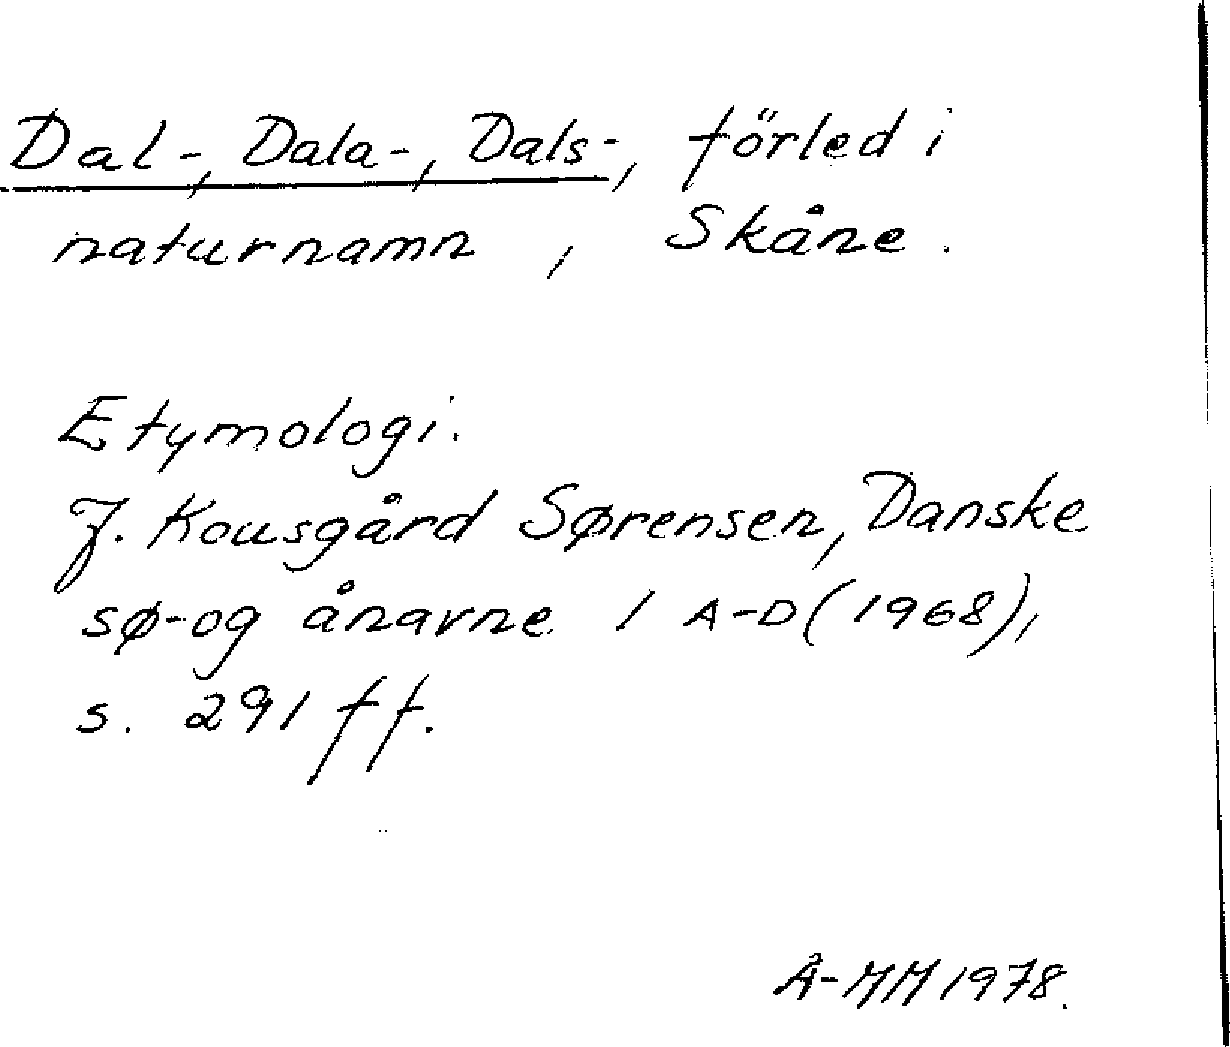 Dal-, Dala-, Dals-, förled i
naturnamn, Skåne.
Etymologi.
J. Kousgård Sørensen, Danske
sø- og ånavne 1 A-D (1968),
s. 291 ff.
Å-MH 1978.